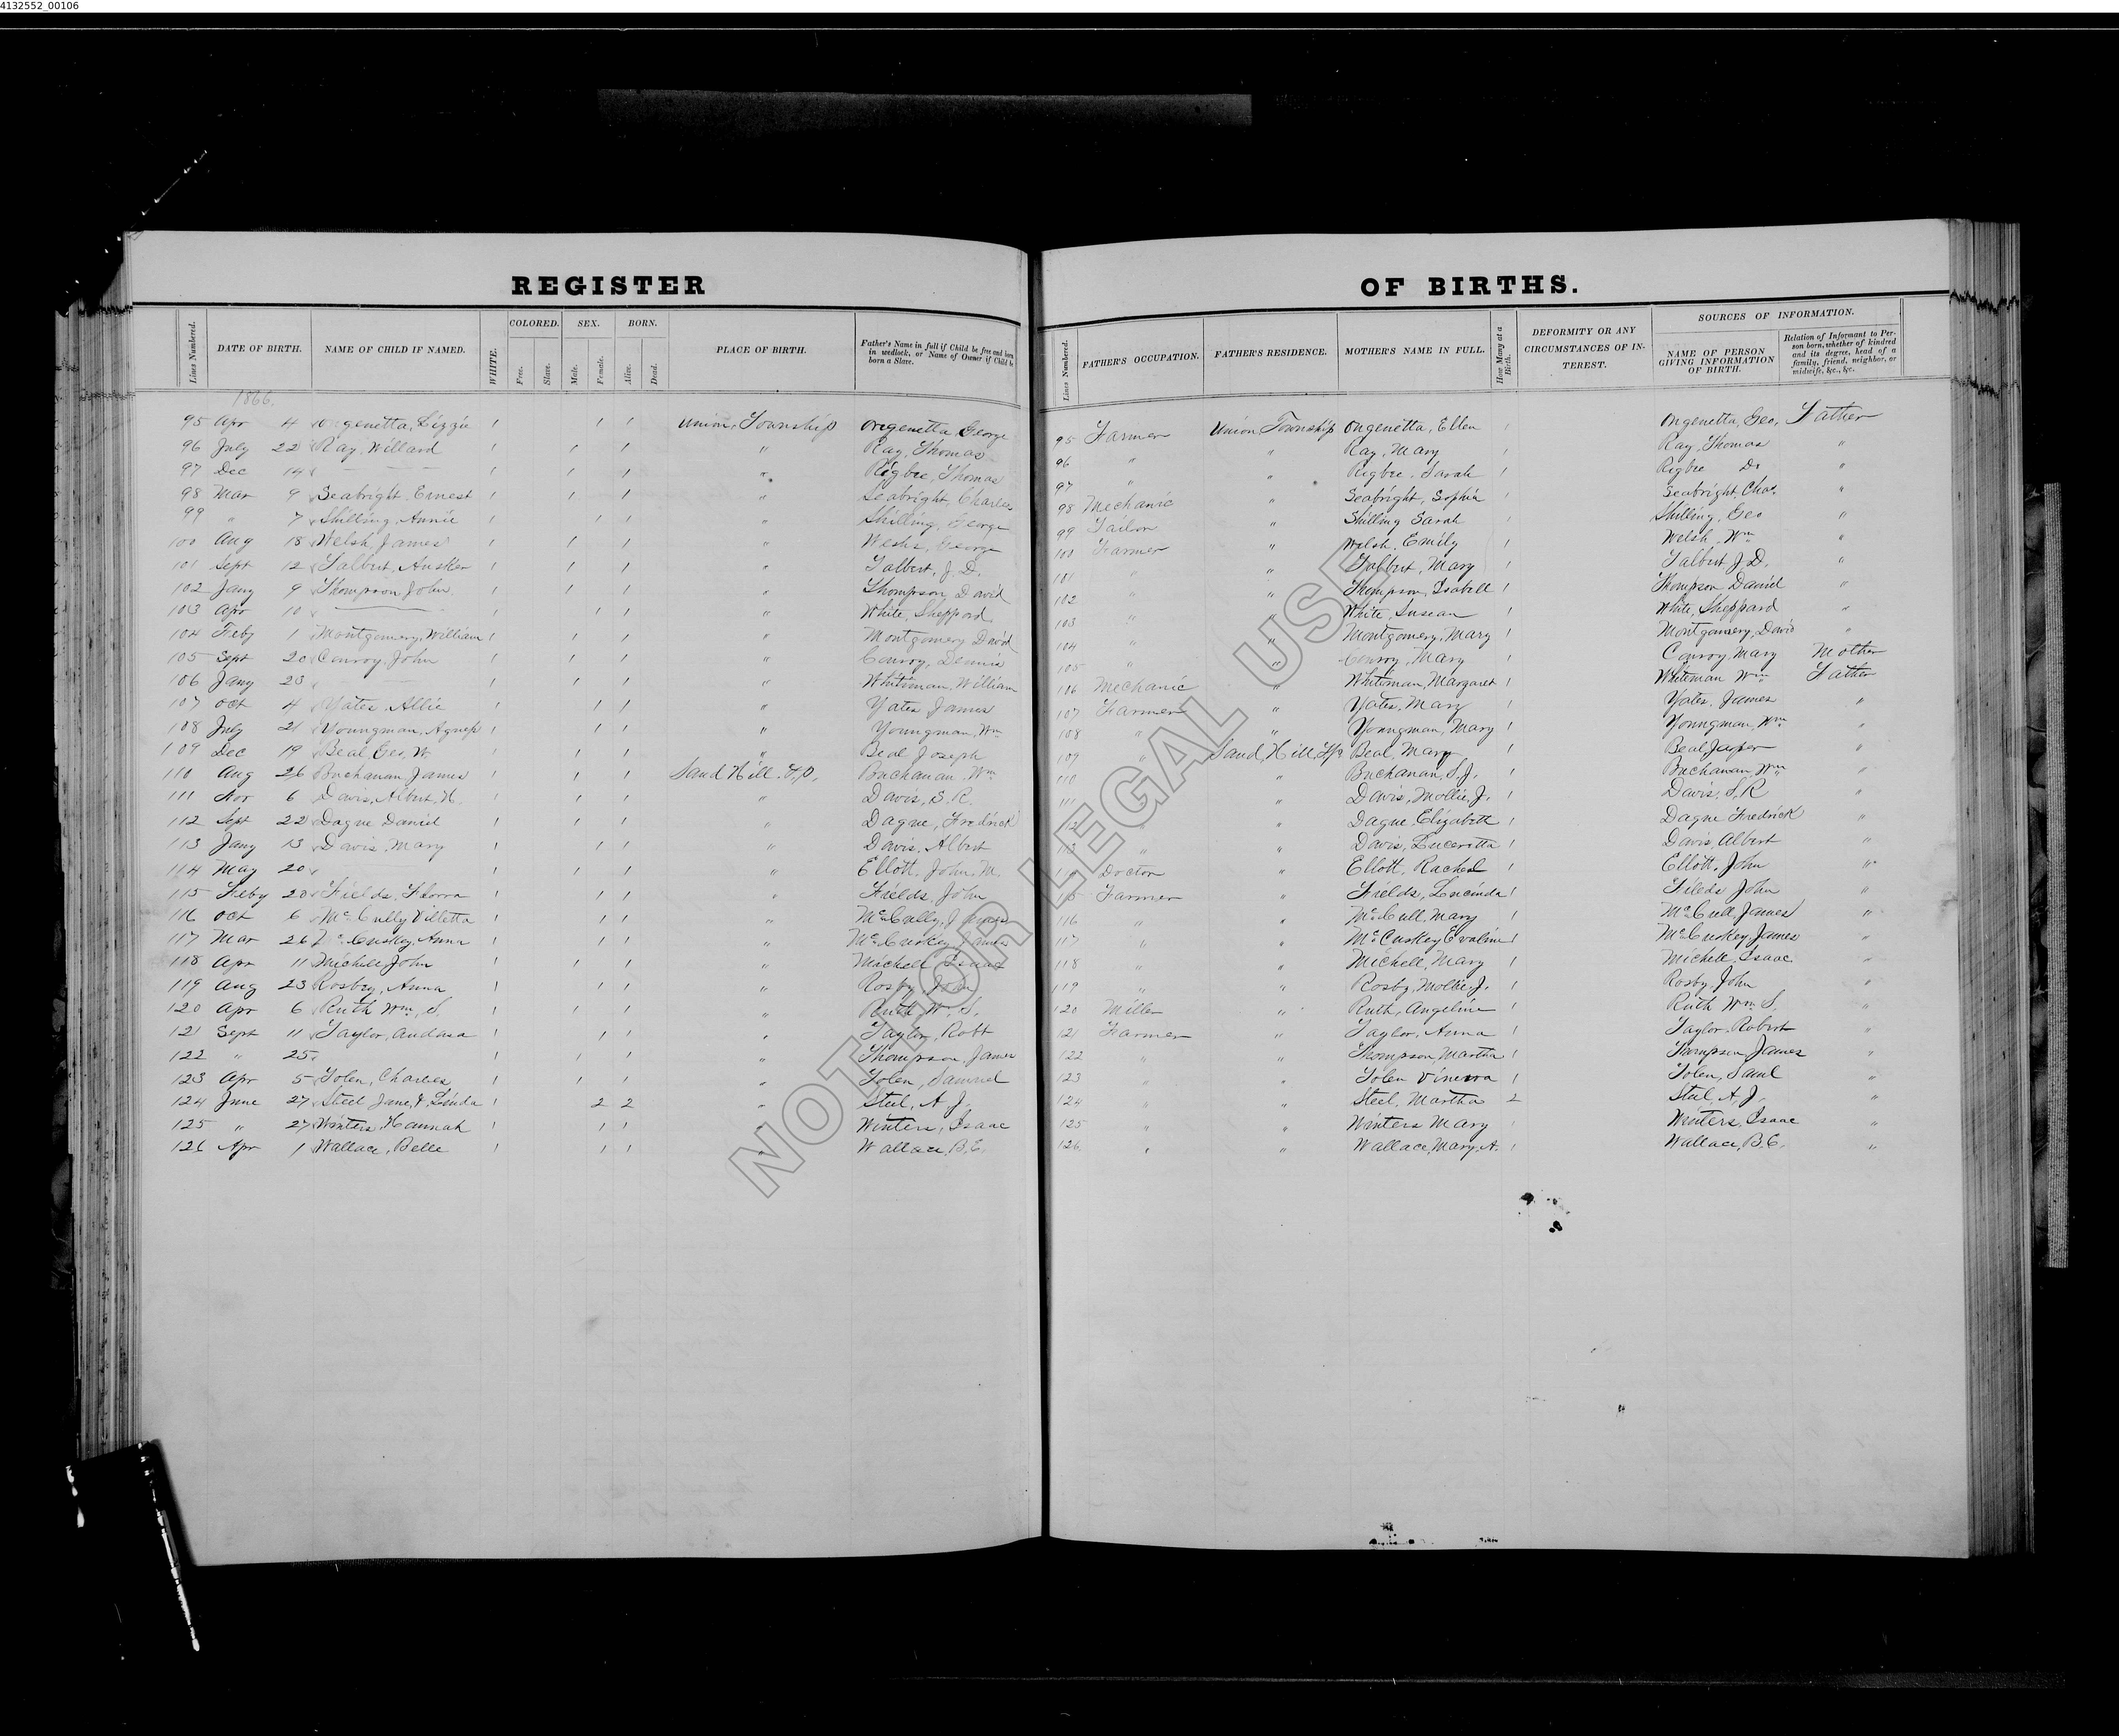 4132552_00106
REGISTER
Lines Numbered. DATE OF BIRTH. NAME OF CHILD IF NAMED. WHITE. COLORED. Free. Slave. SEX. Male. Female. BORN. Alive. Dead. PLACE OF BIRTH. Father's Name in full if Child be free and born in wedlock, or Name of Owner if Child be born a Slave.
1866.
95 Apr 4 Ongenetta, Lizzie 1 1 1 Union, Township Ongenetta George
96 July 22 Ray, Willard 1 1 1 " Ray, Thomas
97 Dec 14 — 1 1 1 " Rigbee, Thomas
98 Mar 9 Seabright Ernest 1 1 1 " Seabright, Charles
99 " 7 Shilling, Annie 1 1 1 " Shilling, George
100 Aug 18 Welsh, James 1 1 1 " George
101 Sept 12 Talbert, Ausker 1 1 1 " Talbert, J. D.
102 Jany 9 Thompson John 1 1 1 " Thompson, David
103 Apr 10 — 1 1 1 " White, Sheppard
104 Feby 1 Montgomery, William 1 1 1 " Montgomery David
105 Sept 20 Conroy, John 1 1 1 " Conroy, Dennis
106 Jany 23 — 1 1 1 " Whiteman, William
107 Oct 4 Yates, Allie 1 1 1 " Yates James
108 July 21 Youngman, Agness 1 1 1 " Youngman, Wm
109 Dec 19 Beal, Geo, W. 1 1 1 " Beal Joseph
110 Aug 26 Buchanan, James 1 1 1 Sand Hill. T,P, Buchanan, Wm
111 Nov 6 Davis, Albert, H. 1 1 1 " Davis, S. R.
112 Sept 22 Dague Daniel 1 1 1 " Dague, Fredrick
113 Jany 13 Davis, Mary 1 1 1 " Davis, Albert
114 May 20 1 1 1 " Ellott, John, M.
115 Feby 20 Fields, Florra 1 1 1 " Fields, John
116 Oct 6 McCully Villetta 1 1 1 " McCully, James
117 Mar 26 McCuskey, Anna 1 1 1 " McCuskey James
118 Apr 11 Michell, John 1 1 1 " Michell Isaac
119 Aug 23 Rosby, Anna 1 1 1 " Rosby, John
120 Apr 6 Ruth Wm, S. 1 1 1 " Ruth W. S.
121 Sept 11 Taylor, Andasa 1 1 1 " Taylor, Robt
122 " 25 1 1 1 " Thompson, James
123 Apr 5 Tolen, Charles 1 1 1 " Tolen, Samuel
124 June 27 Steel Jane, & Linda 1 2 2 " Steel, A J.
125 " 27 Winters, Hannah 1 1 1 Winters, Isaac
126 Apr 1 Wallace, Belle 1 1 1 " Wallace, B. C.
OF BIRTHS.
Lines Numbered. FATHER'S OCCUPATION. FATHER'S RESIDENCE. MOTHER'S NAME IN FULL. How Many at a Birth. DEFORMITY OR ANY CIRCUMSTANCES OF INTEREST. SOURCES OF INFORMATION. NAME OF PERSON GIVING INFORMATION OF BIRTH. Relation of Informant to Person born, whether of kindred and its degree, head of a family, friend, neighbor, or midwife, &c., &c.
95 Farmer Union Township Ongenetta, Ellen 1 Ongenetta, Geo, Father
96 " " Ray, Mary 1 Ray, Thomas "
97 " " Rigbee, Sarah 1 Rigbee Do "
98 Mechanic " Seabright, Sophia 1 Seabright, Chas. "
99 Tailor " Shilling Sarah 1 Shilling, Geo "
100 Farmer " Welsh, Emily 1 Welsh, Wm "
101 " " Talbert, Mary 1 Talbert J. D. "
102 " " Thompson, Isabell 1 Thompson David "
103 " " White, Susean 1 White, Sheppard "
104 " " Montgomery, Mary 1 Montgomery, David "
105 " " Conroy, Mary 1 Conroy Mary Mother
106 Mechanic " Whiteman, Margaret 1 Whiteman Wm Father
107 Farmer " Yates, Mary 1 Yates, James "
108 " " Youngman, Mary 1 Youngman, Wm "
109 " Sand, Hill, T/p Beal, Mary 1 Beal "
110 " Buchanan, S. J. 1 Buchanan Wm "
111 " " Davis, Mollie, J. 1 Davis, S, R "
112 " Dague Elizabeth 1 Dague Fredrick "
113 " " Davis, Luceretta 1 Davis, Albert "
114 Doctor " Ellott, Rachel 1 Ellott, John "
115 Farmer " Fields, Lucinda 1 Fileds John "
116 " " McCull, Mary 1 McCull, James "
117 " " McCuskey Evaline 1 McCuskey James "
118 " " Michell, Mary 1 Michell, Isaac "
119 " " Rosby, Mollie J. 1 Rosby, John "
120 Miller " Ruth, Angeline 1 Ruth Wm S. "
121 Farmer " Taylor, Anna 1 Taylor, Robert "
122 " " Thompson, Martha 1 Thompson, James "
123 " " Tolen Vinerra 1 Tolen, Saml "
124 " " Steel, Martha 2 Steel, A. J. "
125 " " Winters Mary 1 Winters, Isaac "
126 " " Wallace, Mary, A. 1 Wallace, B. C. "
NOT FOR LEGAL USE